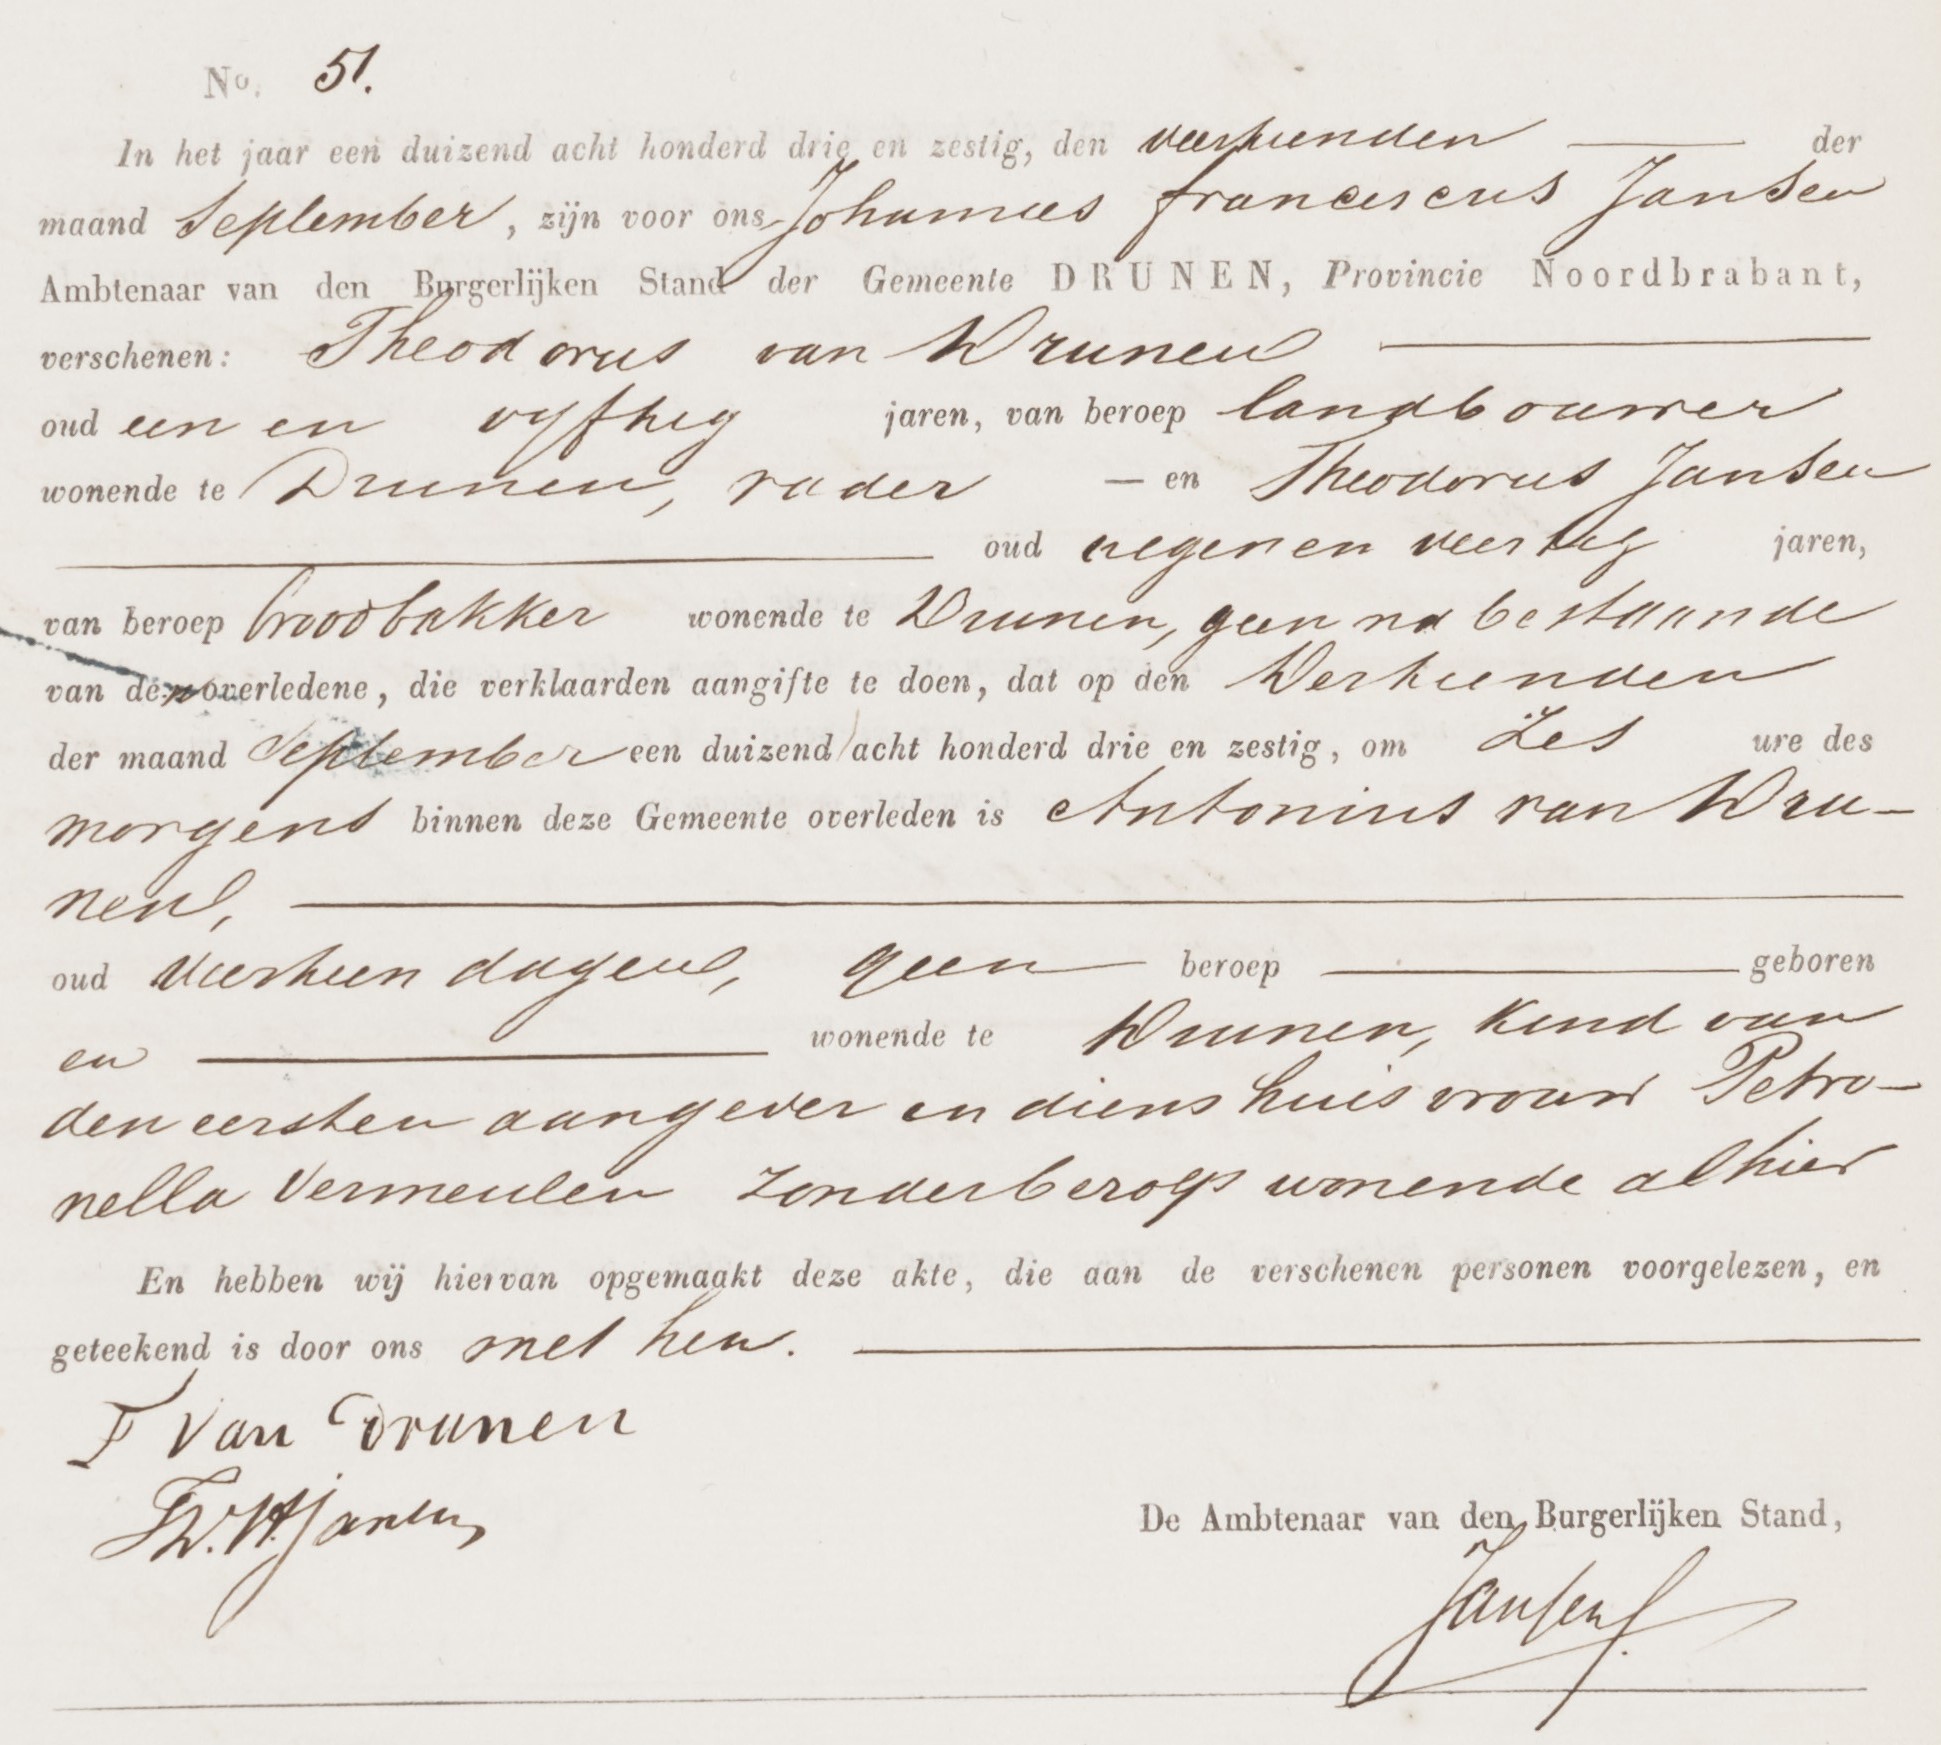 No. 51.
In het jaar een duizend acht honderd drie en zestig, den veertienden der
maand September, zijn voor ons Johannes franciscus Jansen
Ambtenaar van den Burgerlijken Stand der Gemeente DRUNEN, Provincie Noordbrabant,
verschenen: Theodorus van Drunen
oud een en vyftig jaren, van beroep landbouwer
wonende te Drunen, vader — en Theodorus Jansen
oud negen en veertig jaren,
van beroep broodbakker wonende te Drunen, geen na bestaande
van den overledene, die verklaarden aangifte te doen, dat op den Dertienden
der maand September een duizend acht honderd drie en zestig, om Zes ure des
morgens binnen deze Gemeente overleden is Antonius van Dru-
nen,
oud veertien dagen, geen beroep geboren
en wonende te Drunen, kind van
den eersten aangever en diens huisvrouw Petro-
nella Vermeulen zonder beroep wonende alhier
En hebben wij hiervan opgemaakt deze akte, die aan de verschenen personen voorgelezen, en
geteekend is door ons met hen.
T van Drunen
Th. W. Jansen
De Ambtenaar van den Burgerlijken Stand,
Jansen